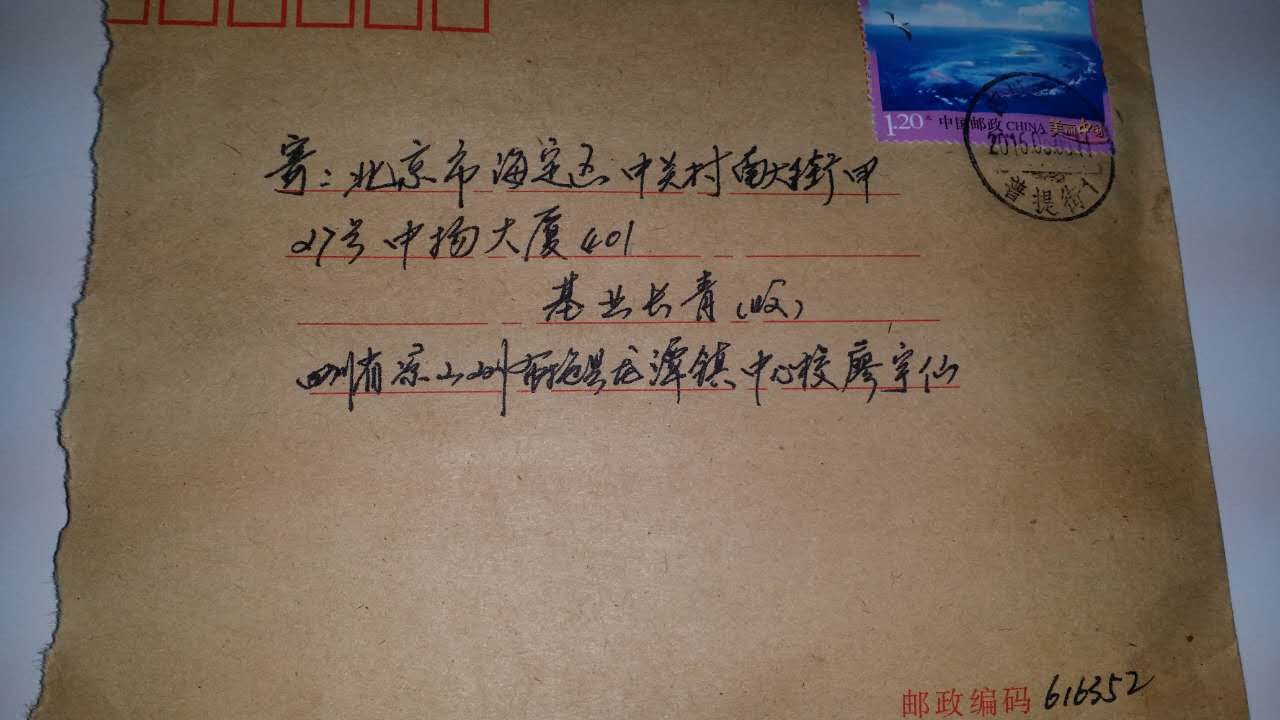 1.20元 中国邮政 CHINA 美丽中国
普提街1
寄：北京市海定区中关村南大街甲
27号中扬大厦401
基业长青（收）
四川省凉山州布拖县龙潭镇中心校廖宇仙
邮政编码 616352